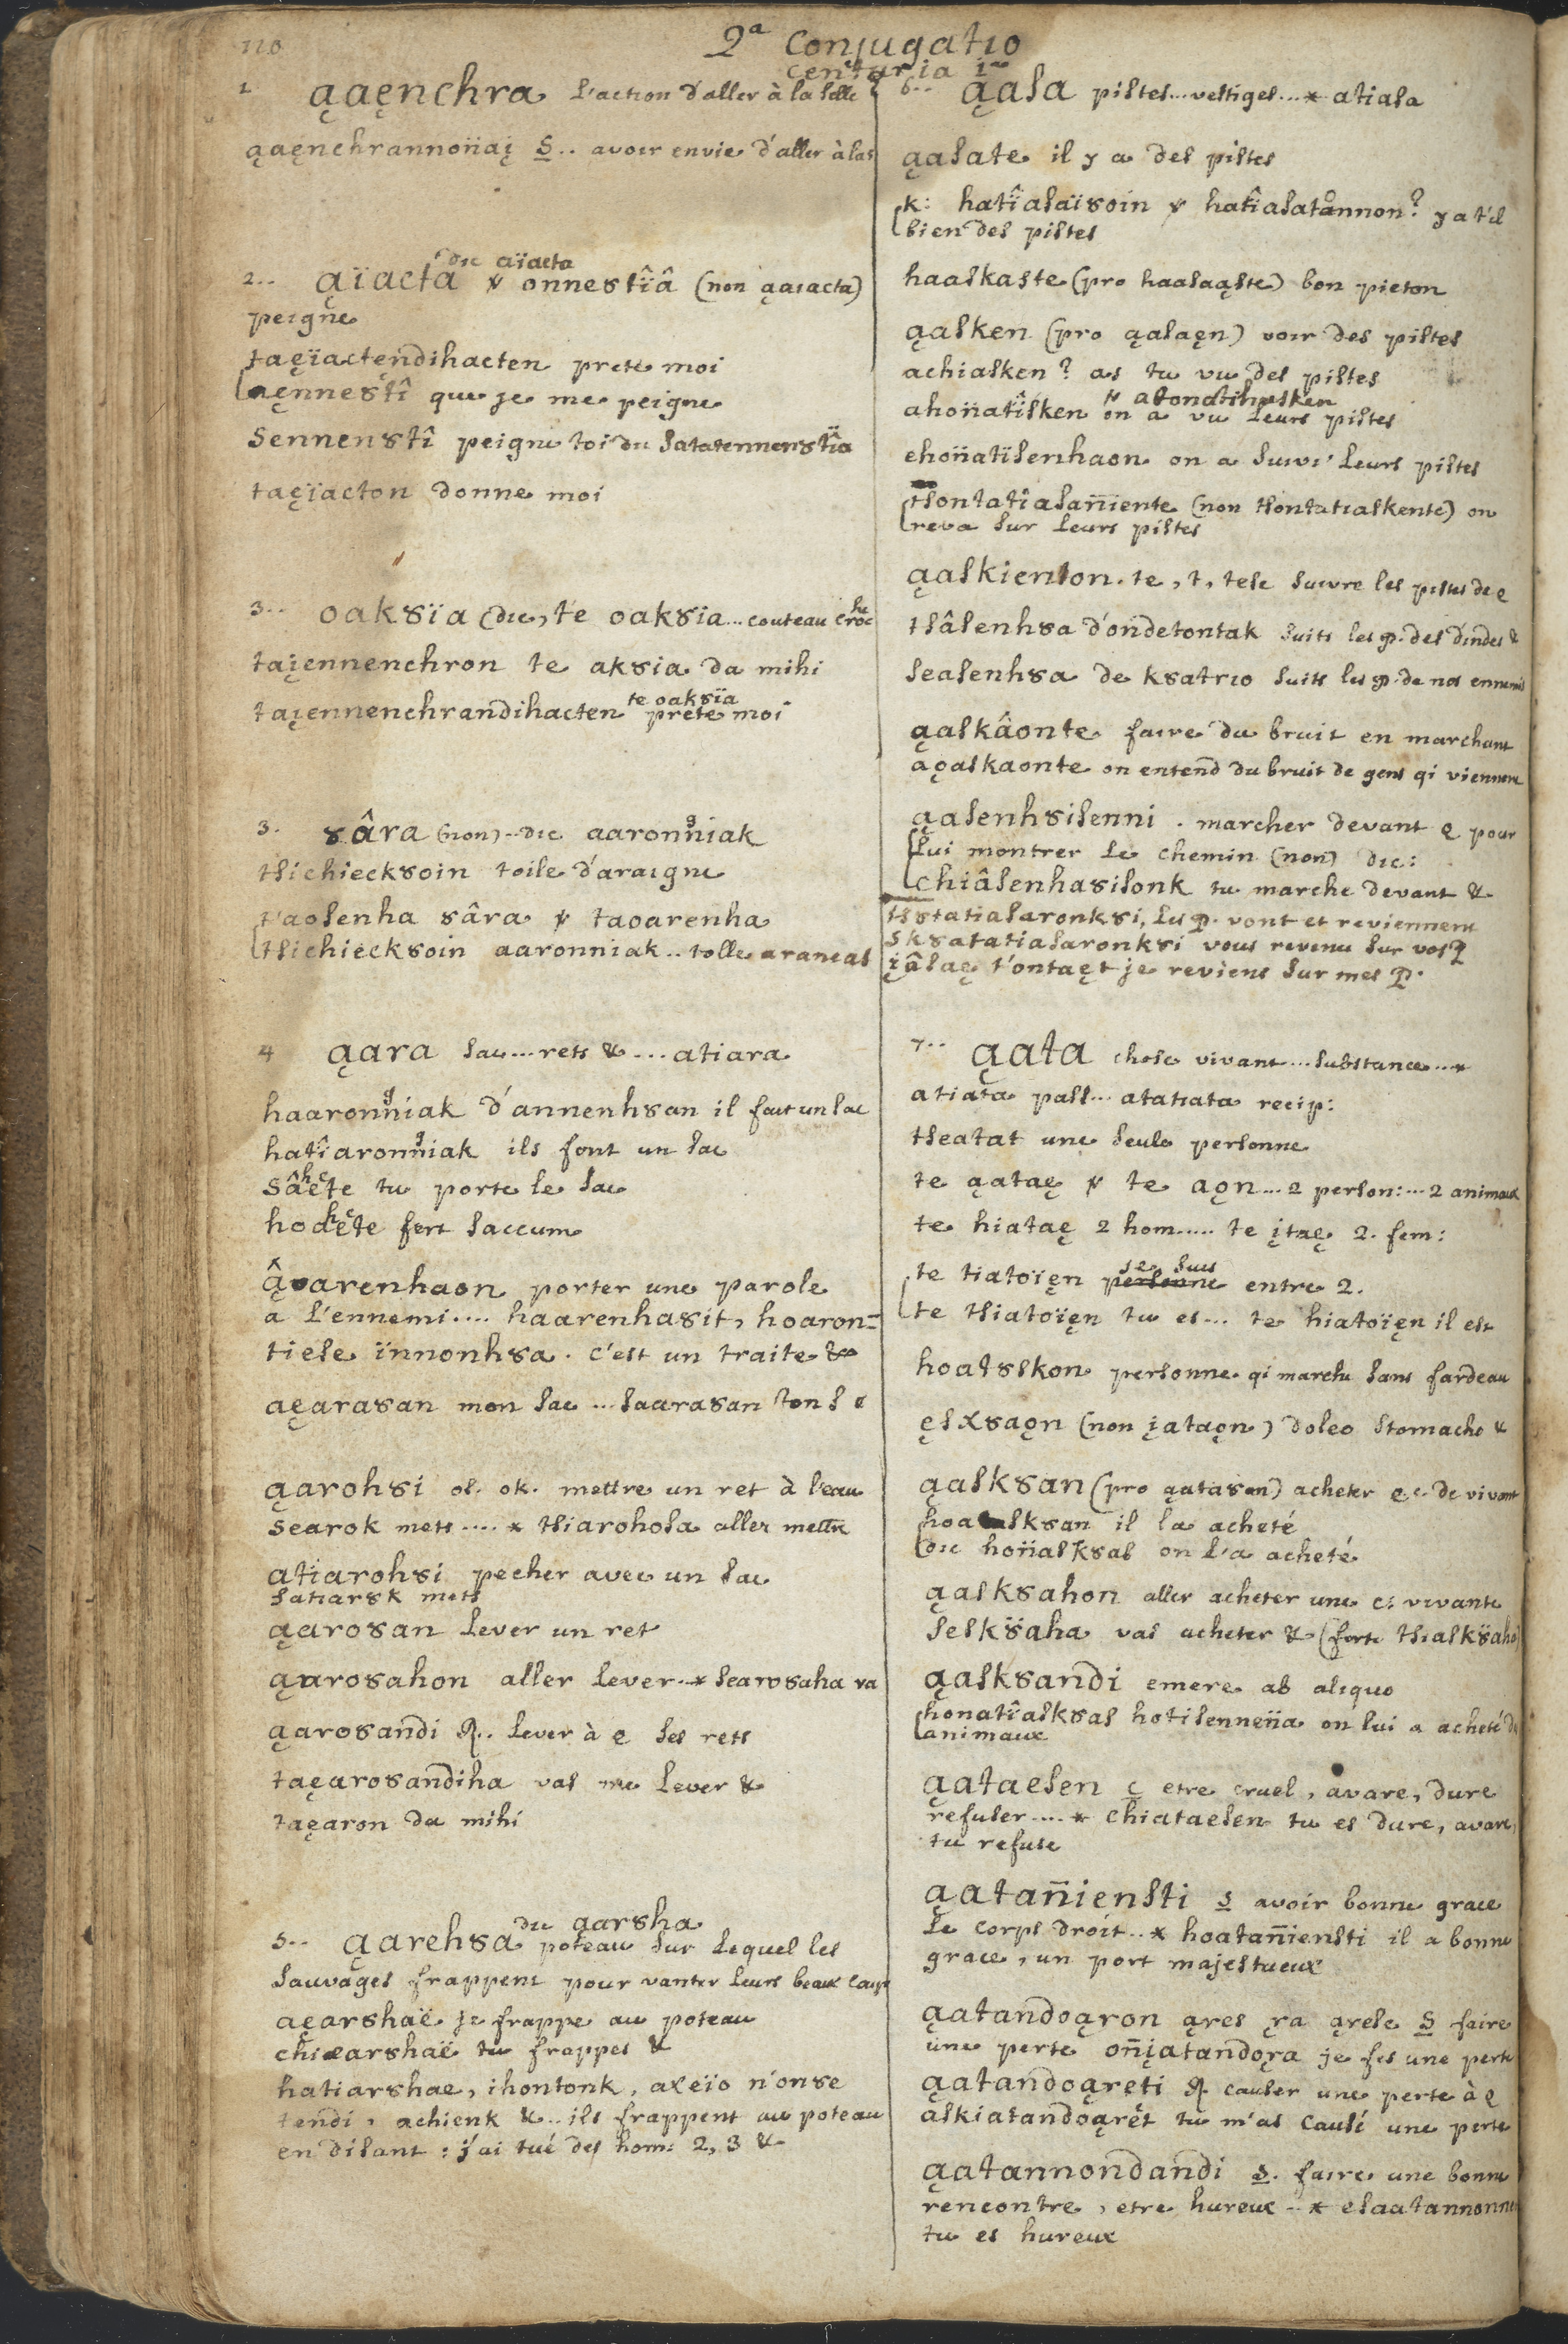 110
2ª Conjugatio
centuria 1ª
1 ąaęnchra L'action d'aller à la selle
ąaęnchrannonÿaį S.. avoir envie d'aller à la s
dic aïacta
2.. ąïacta ȣ onnesȣtîâ (non ąaıacta)
peigne
taęïactęndihacten prete moi
aęnnesȣtî que je me peigne
Sennenȣtî peigne toi du satatennenȣtîa
taęïacton donne moi
3.. oakȣïa (dic, te oakȣia... couteau croche
taįennenchron te akȣia da mihi
te oakȣïa
taįennenchrandihacten prete moi
3. ȣâra (non).. dic aaronñiak
tsichieckȣoin toile d'araigne
t'aosenha ȣâra ȣ taoarenha
tsichieckȣoin aaronniak.. tolle araneas
4 ąara sac... rets &.... atiara
haaronñiak d'annenhȣan il fait un sac
hatîaronñiak ils font un sac
Sâhete tu porte le sac
hoahete fert saccum
ą̂arenhaon porter une parole
a l'ennemi.... haarenhaȣit, hoaron=
tiese ïnnonhȣa. c'est un traite &
aęaraȣan mon sac ... saaraȣan ton s
ąarohȣi os. ok. mettre un ret à l'eau
searok mets .... * tsiarohosa aller mettre
atiarohȣi pecher avec un sac
satiarȣk mets
ąaroȣan Lever un ret
ąaroȣahon aller lever.. * searoȣaha va
ąaroȣandi ꝶ. Lever à ҽ ses rets
taęaroȣandiha vas me lever &
taęaron da mihi
dic ąarȣha
5.. ąarehȣa poteau sur lequel les
sauvages frappent pour vanter leurs beaux coups
aęarȣhaë je frappe au poteau
chiearȣhaë tu frappes &
hatiarȣhae, ihontonk, axeïo n'onȣe
tendi, achienk &.. ils frappent au poteau
en disant : j'ai tué des hom: 2, 3 &
6.. ąasa pistes... vestiges... * atiasa
ąasate il y a des pistes
k: hatîasaïȣoin ȣ hatîasatannon? y a t'il
bien des pistes
haaskaste (pro haasaąste) bon pieton
ąasken (pro ąasaęn) voir des pistes
achiasken? as tu vu des pistes
ahonÿatîsken on a vu leurs pistes
ehonÿatïsenhaon on a suivi leurs pistes
tsontatîasañiente (non tsontatiaskente) on
reva sur leurs pistes
ąaskienton. te, t, tese suivre les pistes de ҽ
tsâsenhȣa d'ondetontak suits les p. des dindes &
seasenhȣa de kȣatrio suits les p. de nos ennemis
ąaskâonte faire du bruit en marchant
aoaskaonte on entend du bruit de gens qi viennent
ąasenhȣisenni. marcher devant ҽ pour
lui montrer le chemin (non) dic:
chiâsenhaȣisonk tu marche devant &
tsȣtatiasaronkȣi, les p. vont et reviennent
Skȣatatiasaronkȣi vous revenu sur vos p
įâsaę t'ontaęt je reviens sur mes p.
7.. ąata chose vivant... substance... *
atiata pass... atatiata recip:
tseatat une seule personne
te ąataę ȣ te aǫn... 2 person:... 2 animaux
te hiataę 2 hom..... te įtaę 2. fem:
je suis
te tiatoïęn personne entre 2.
te tsiatoïęn tu es... te hiatoïęn il est
hoatȣskon personne qi marche sans fardeau
ęsxȣaǫn (non įataǫn) doleo stomacho &
ąaskȣan (pro ąataȣan) acheter ҽ c. de vivant
hoaskȣan il la acheté
dic honÿaskȣas on l'a acheté
ąaskȣahon aller acheter une c: vivante
seskȣaha vas acheter & (forte tsiaskȣaha)
ąaskȣandi emere ab aliquo
honatîaskȣas hotisennenÿa on lui a acheté d
animaux
ąataesen ç etre cruel, avare, dure
refuser.... * chiataesen tu es dure, avare,
tu refuse
ąatañiensti s avoir bonne grace
le corps droit.. * hoatañiensti il a bonne
grace, un port majestueux
ąatandoąron ąres ra ąrese S faire
une perte onįatandoǫra je fes une perte
ąatandoąreti ꝶ causer une perte à ҽ
askiatandoąrët tu m'as causé une perte
ąatannondandi s. faire une bonne
rencontre, etre hureux .. * esaatannonn
tu es hureux